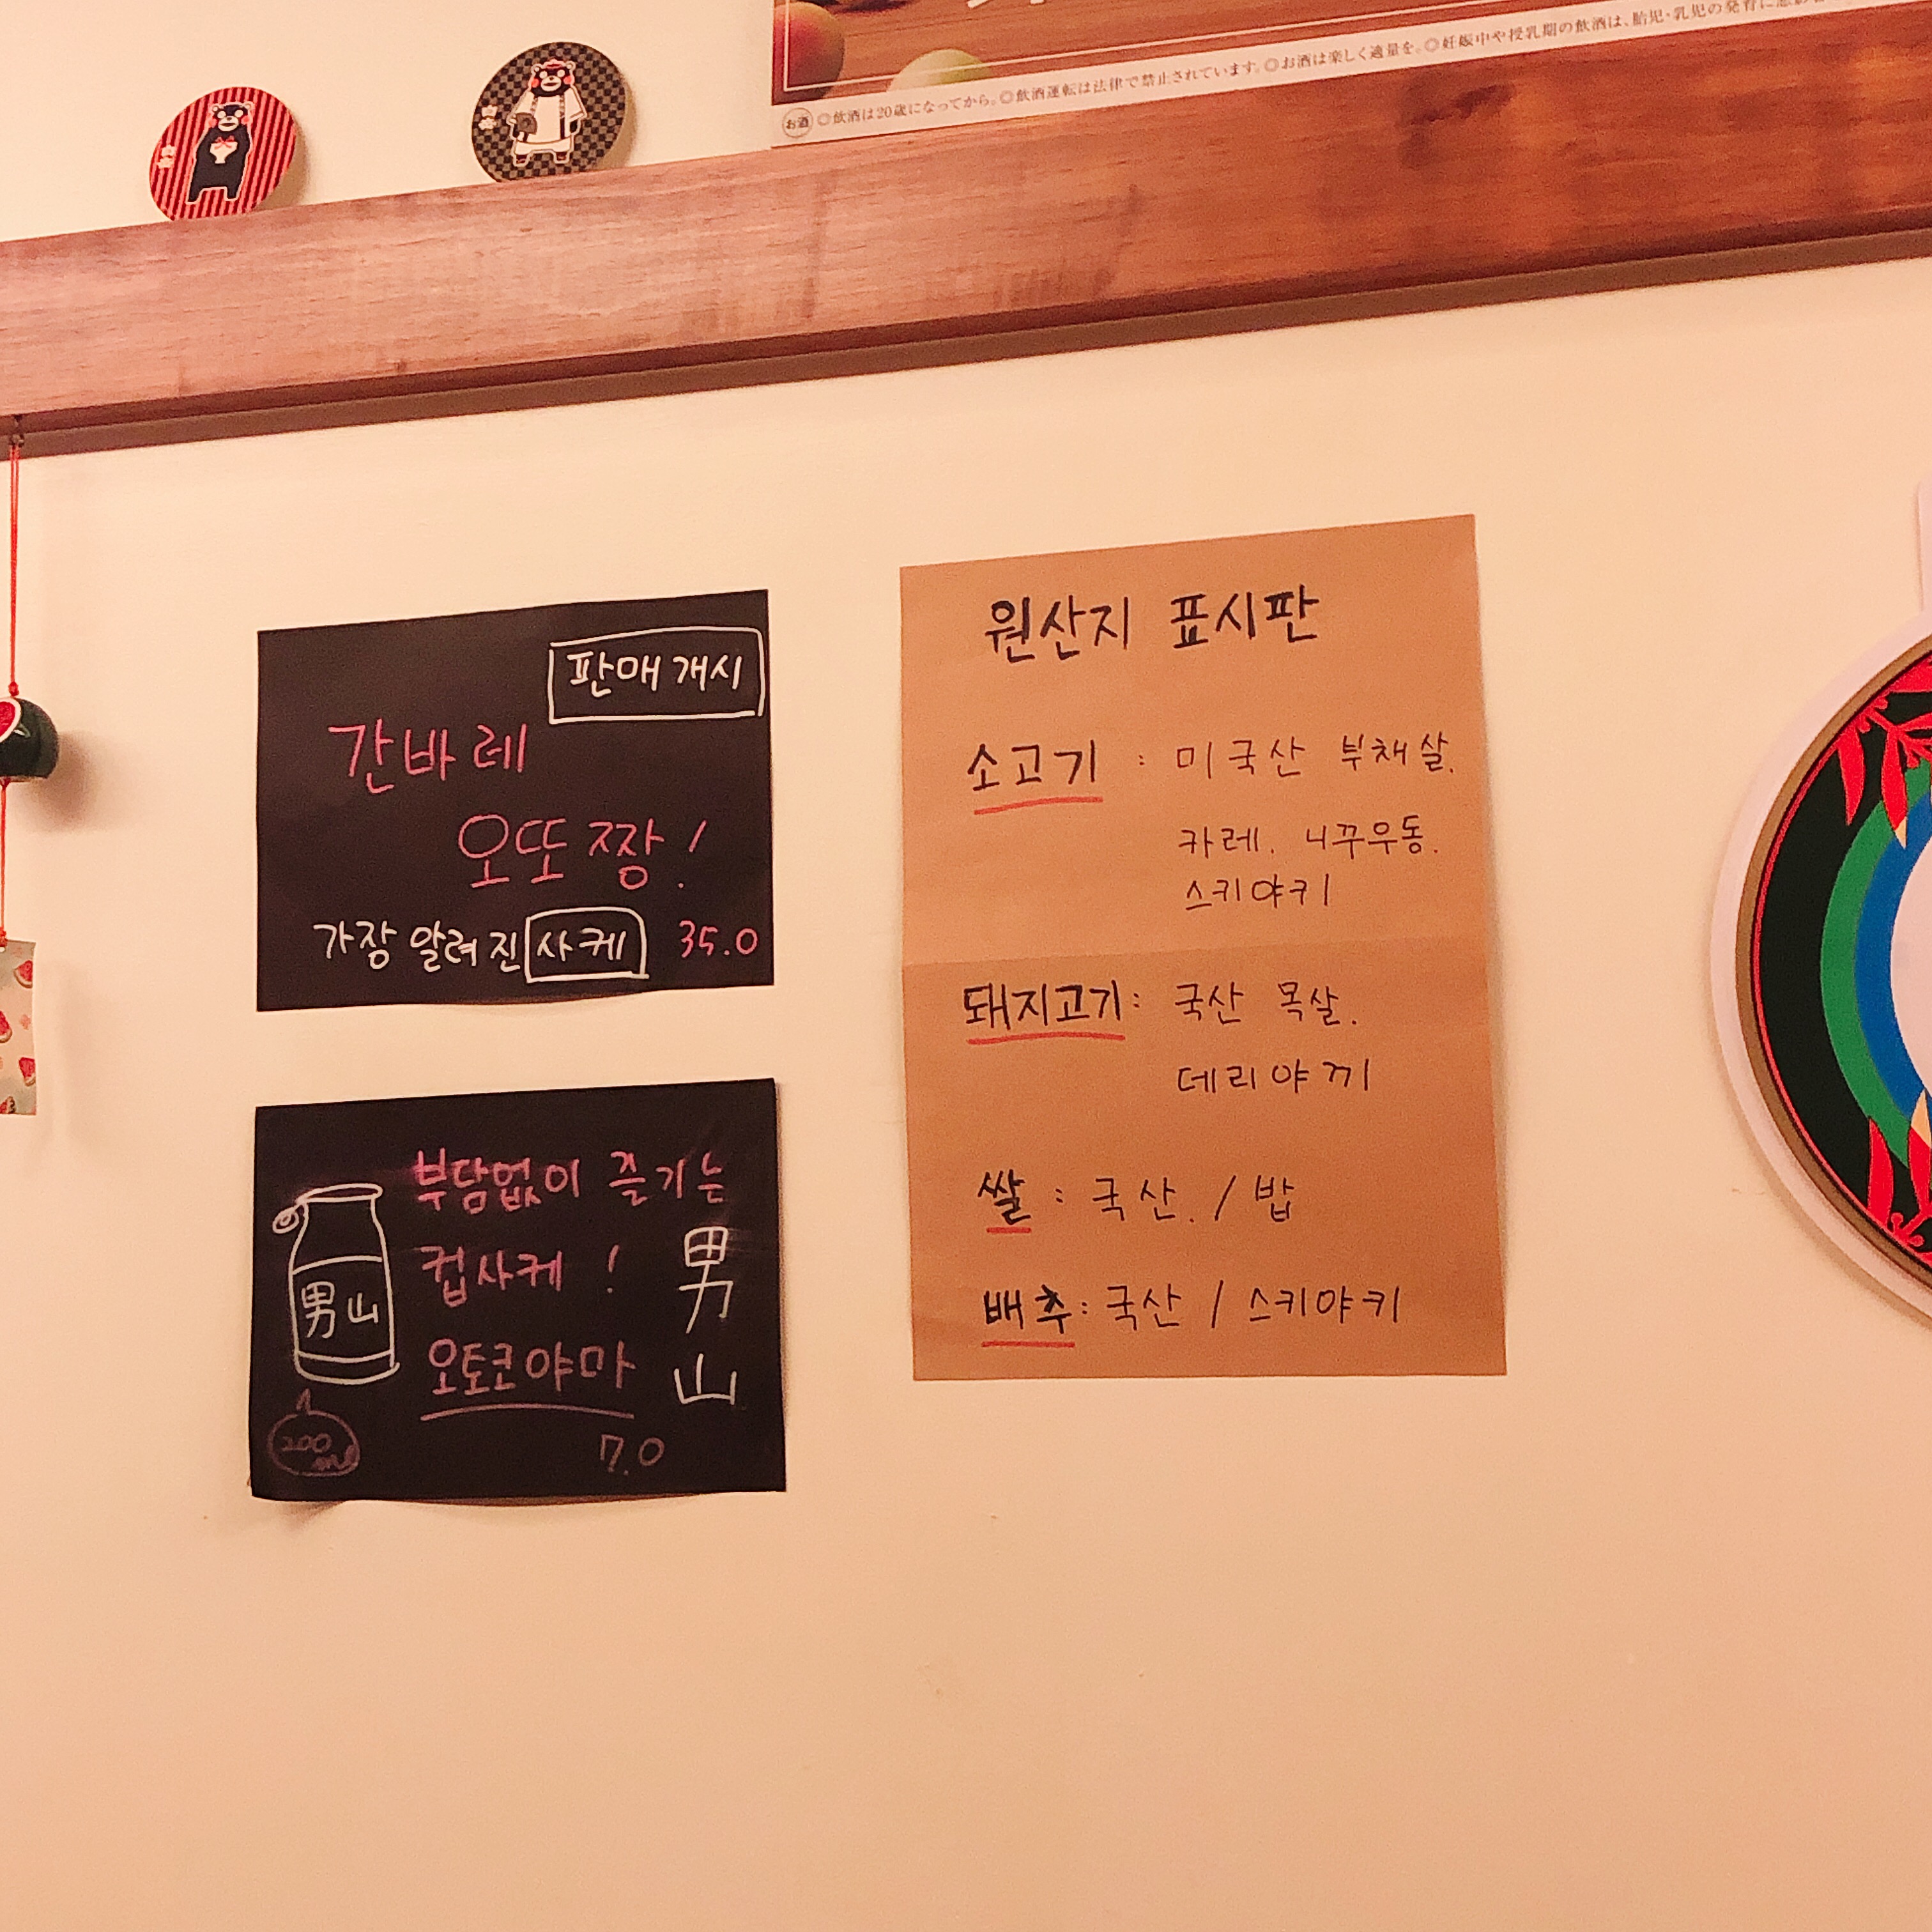 お酒 ◎飲酒は20歳になってから。◎飲酒運転は法律で禁止されています。◎お酒は楽しく適量を。◎妊娠中や授乳期の飲酒は、胎児・乳児の発育に悪影響
판매개시
간바레
오또짱!
가장 알려진 사케 35.0
부담없이 즐기는
컵사케!
오토코야마
男山
男山
200ml
7.0
원산지 표시판
소고기 : 미국산 부채살.
카레. 니꾸우동.
스키야키
돼지고기: 국산 목살.
데리야끼
쌀 : 국산. / 밥
배추: 국산 / 스키야키